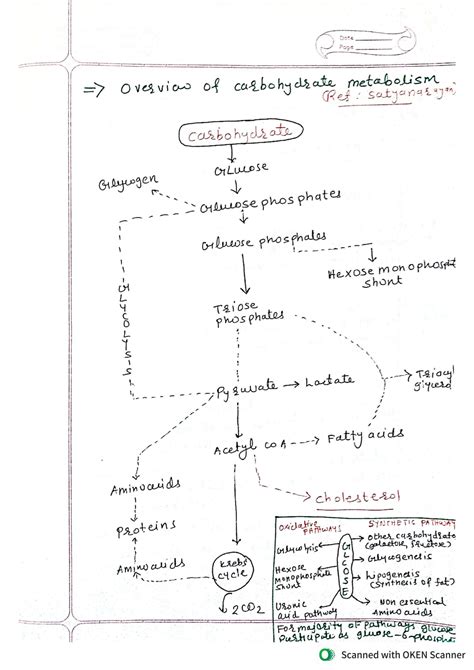 Date
Page
=> Overview of carbohydrate metabolism
(Ref: Satyanarayan)
Carbohydrate
Glucose
Glycogen
Glucose phosphates
Glucose phosphates
Hexose monophosph
shunt
GLYCOLYSIS
Triose
phosphates
Triacyl
glycerol
Pyruvate → Lactate
Acetyl CoA → Fatty acids
Aminoacids
Cholesterol
Proteins
Aminoacids
Krebs
cycle
2CO2
Oxidative
PATHWAYS
SYNTHETIC PATHWAY
Glycolysis
Hexose
monophosphate
shunt
Uronic
acid pathway
GLUCOSE
Other carbohydrate
(galactose, fructose)
Glycogenesis
Lipogenesis
(synthesis of fat)
Non essential
Aminoacids
For majority of pathways glucose
participate as glucose-6-phospha
Scanned with OKEN Scanner